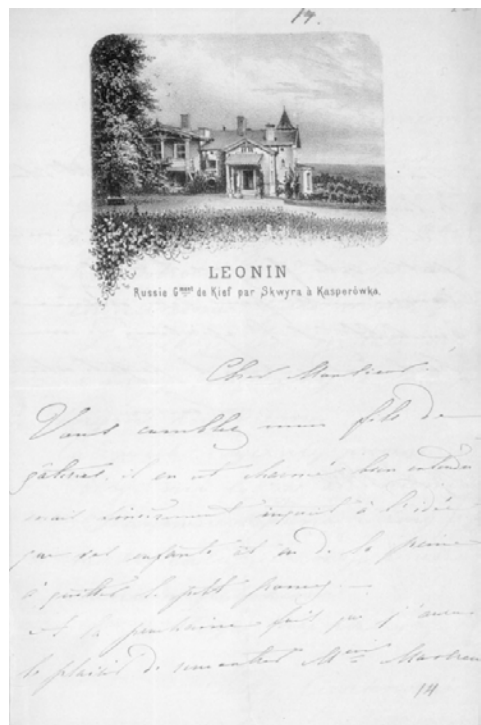 14.
LEONIN
Russie Gment de Kief par Skwyra à Kasperówka.
Cher Monsieur
Vous comblez mon fils de
gâteries, il en est charmé bien entendu
mais sincèrement à l'idée
que vos enfants ont eu de la peine
à quitter le petit poney.
la prochaine fois que j'aurai
le plaisir de rencontrer Mme
14